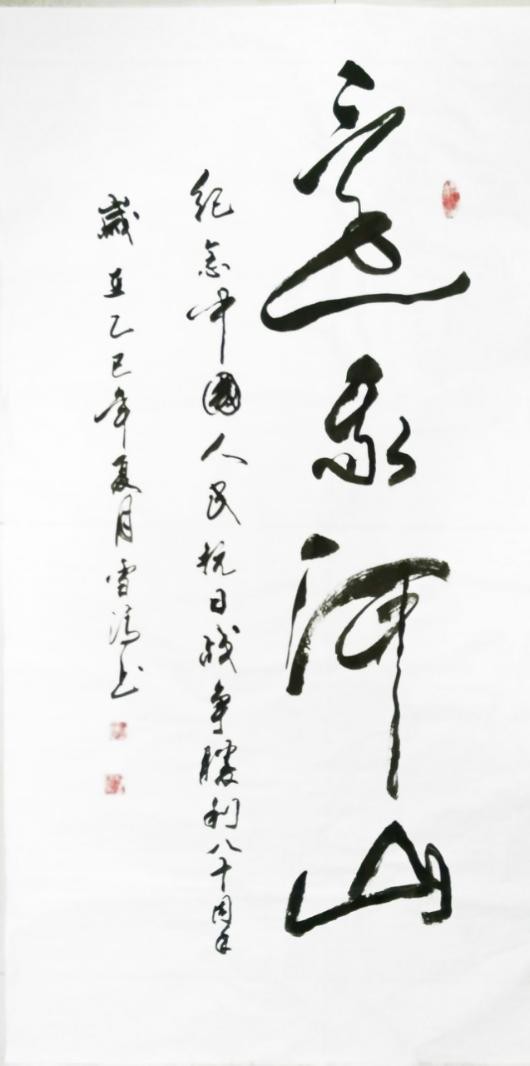 還我河山
紀念中國人民抗日战争勝利八十周年
歲在乙巳年夏月雪濤书